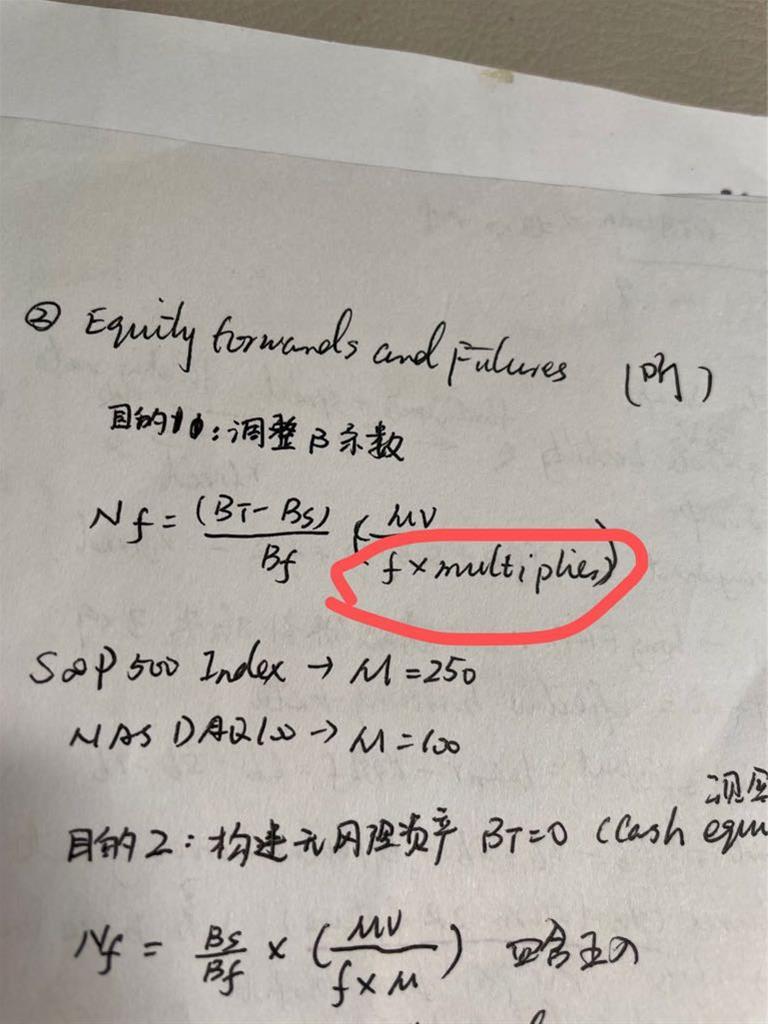 ② Equity forwards and Futures (听)
目的1:调整β系数
Nf = (BT - BS) / Bf (MV / f × multiplier)
S&P 500 Index → M = 250
NASDAQ100 → M = 100
目的2:构建无风险资产 BT=0 (Cash equi
现金
Nf = BS / Bf × (MV / f × M) 四舍五入